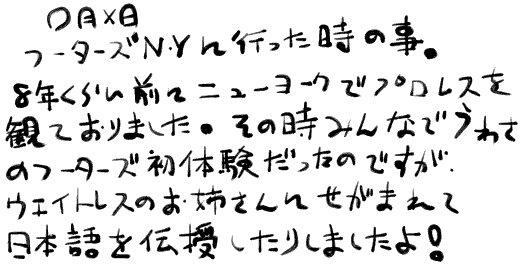 〇月×日
フーターズN.Yに行った時の事。
8年くらい前にニューヨークでプロレスを
観ておりました。その時みんなでうわさ
のフーターズ初体験だったのですが、
ウエイトレスのお姉さんにせがまれて
日本語を伝授したりしましたよ!